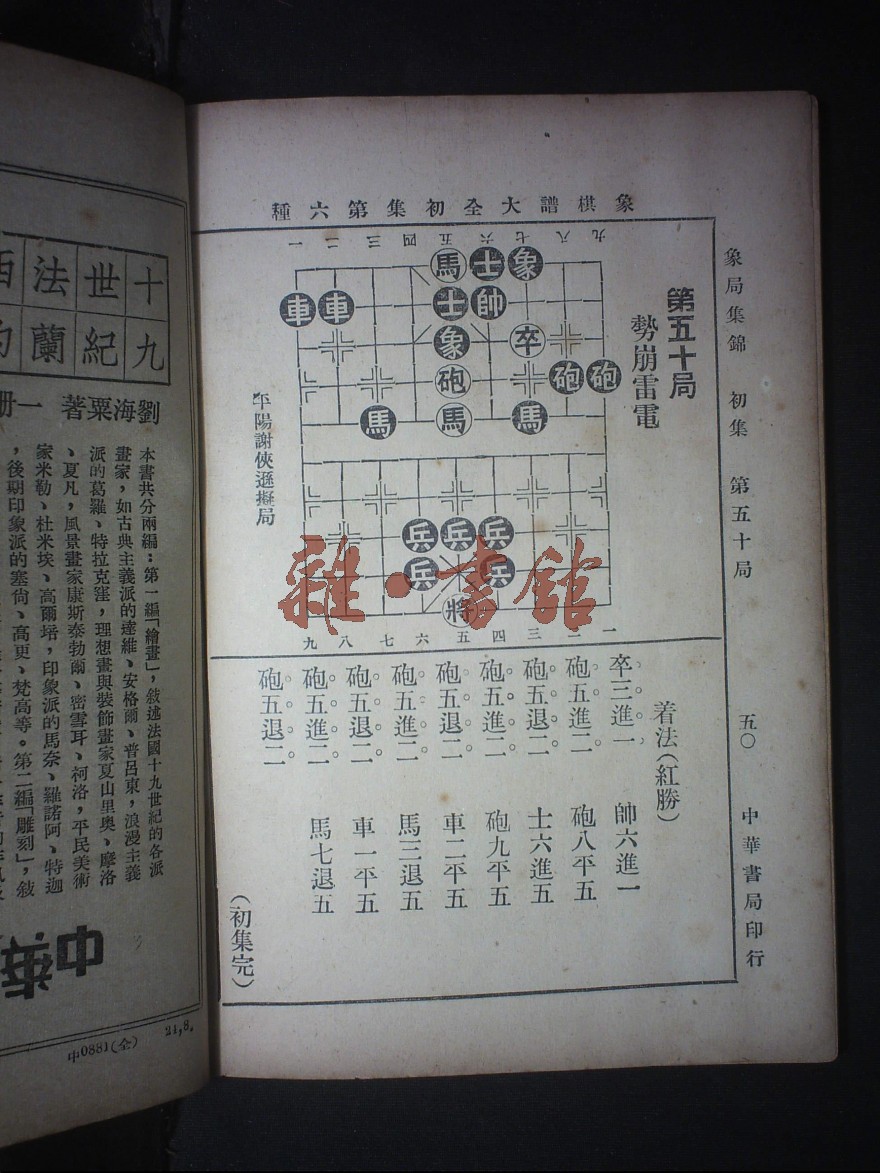 象棋譜大全初集第六種
象局集錦 初集 第五十局 五〇 中華書局印行
第五十局
勢崩雷電
九八七六五四三二一
馬士象
車車士帥
象卒
砲砲砲
馬馬馬
兵兵兵
兵兵
將
九八七六五四三二一
平陽謝俠遜擬局
着法(紅勝)
卒三進一 帥六進一
砲五進二 砲八平五
砲五退二 士六進五
砲五進二 砲九平五
砲五退二 車二平五
砲五進二 馬三退五
砲五退二 車一平五
砲五進二 馬七退五
砲五退二
(初集完)
雜·書館
十九
世紀
法蘭
西
劉海粟著 一册
本書共分兩編:第一編「繪畫」,敍述法國十九世紀的各派
畫家,如古典主義派的達維、安格爾、普呂東,浪漫主義
派的葛羅、特拉克窪,理想畫與裝飾畫家夏山里奥、摩洛
、夏凡,風景畫家康斯泰勃爾、密雪耳、祠洛,平民美術
家米勒、杜米埃、高爾培,印象派的馬奈、羅諾阿、特迦
,後期印象派的塞尙、高更、梵高等。第二編「雕刻」,敍
中華
21,8.
中0881(全)